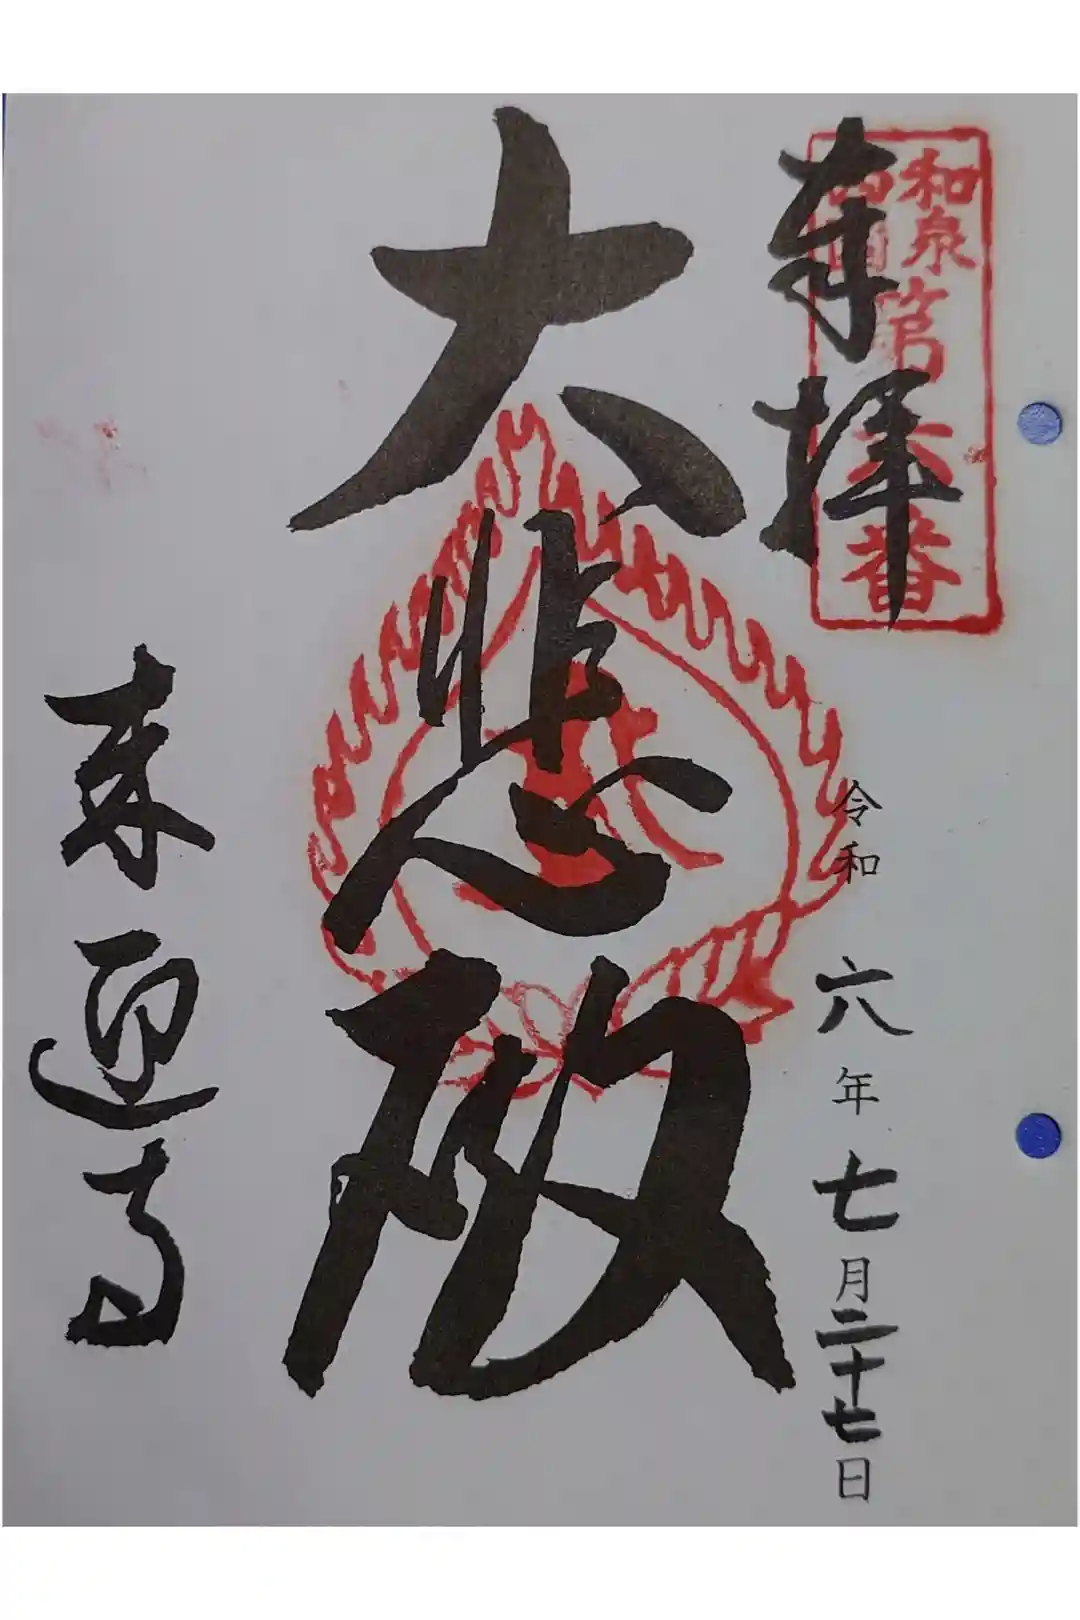 奉拝
和泉
西国
第六番
令和六年七月二十七日
大悲殿
来迎寺